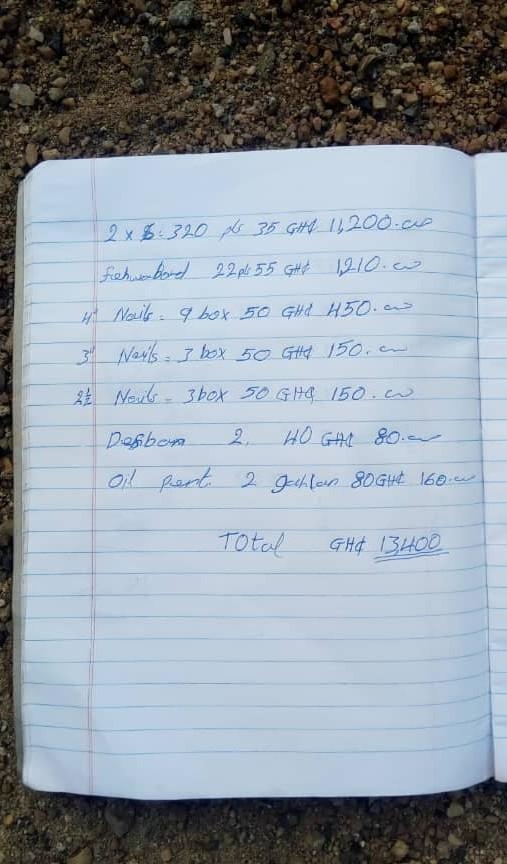 2 x 6 : 320 pls 35 GH¢ 11,200.00
22 pls 55 GH¢ 1,210.00
4" Nails = 9 box 50 GH¢ 450.00
3" Nails = 3 box 50 GH¢ 150.00
2½ Nails = 3 box 50 GH¢ 150.00
2, 40 GH¢ 80.00
Oil pent. 2 gahlan 80 GH¢ 160.00
TOtal GH¢ 13,400